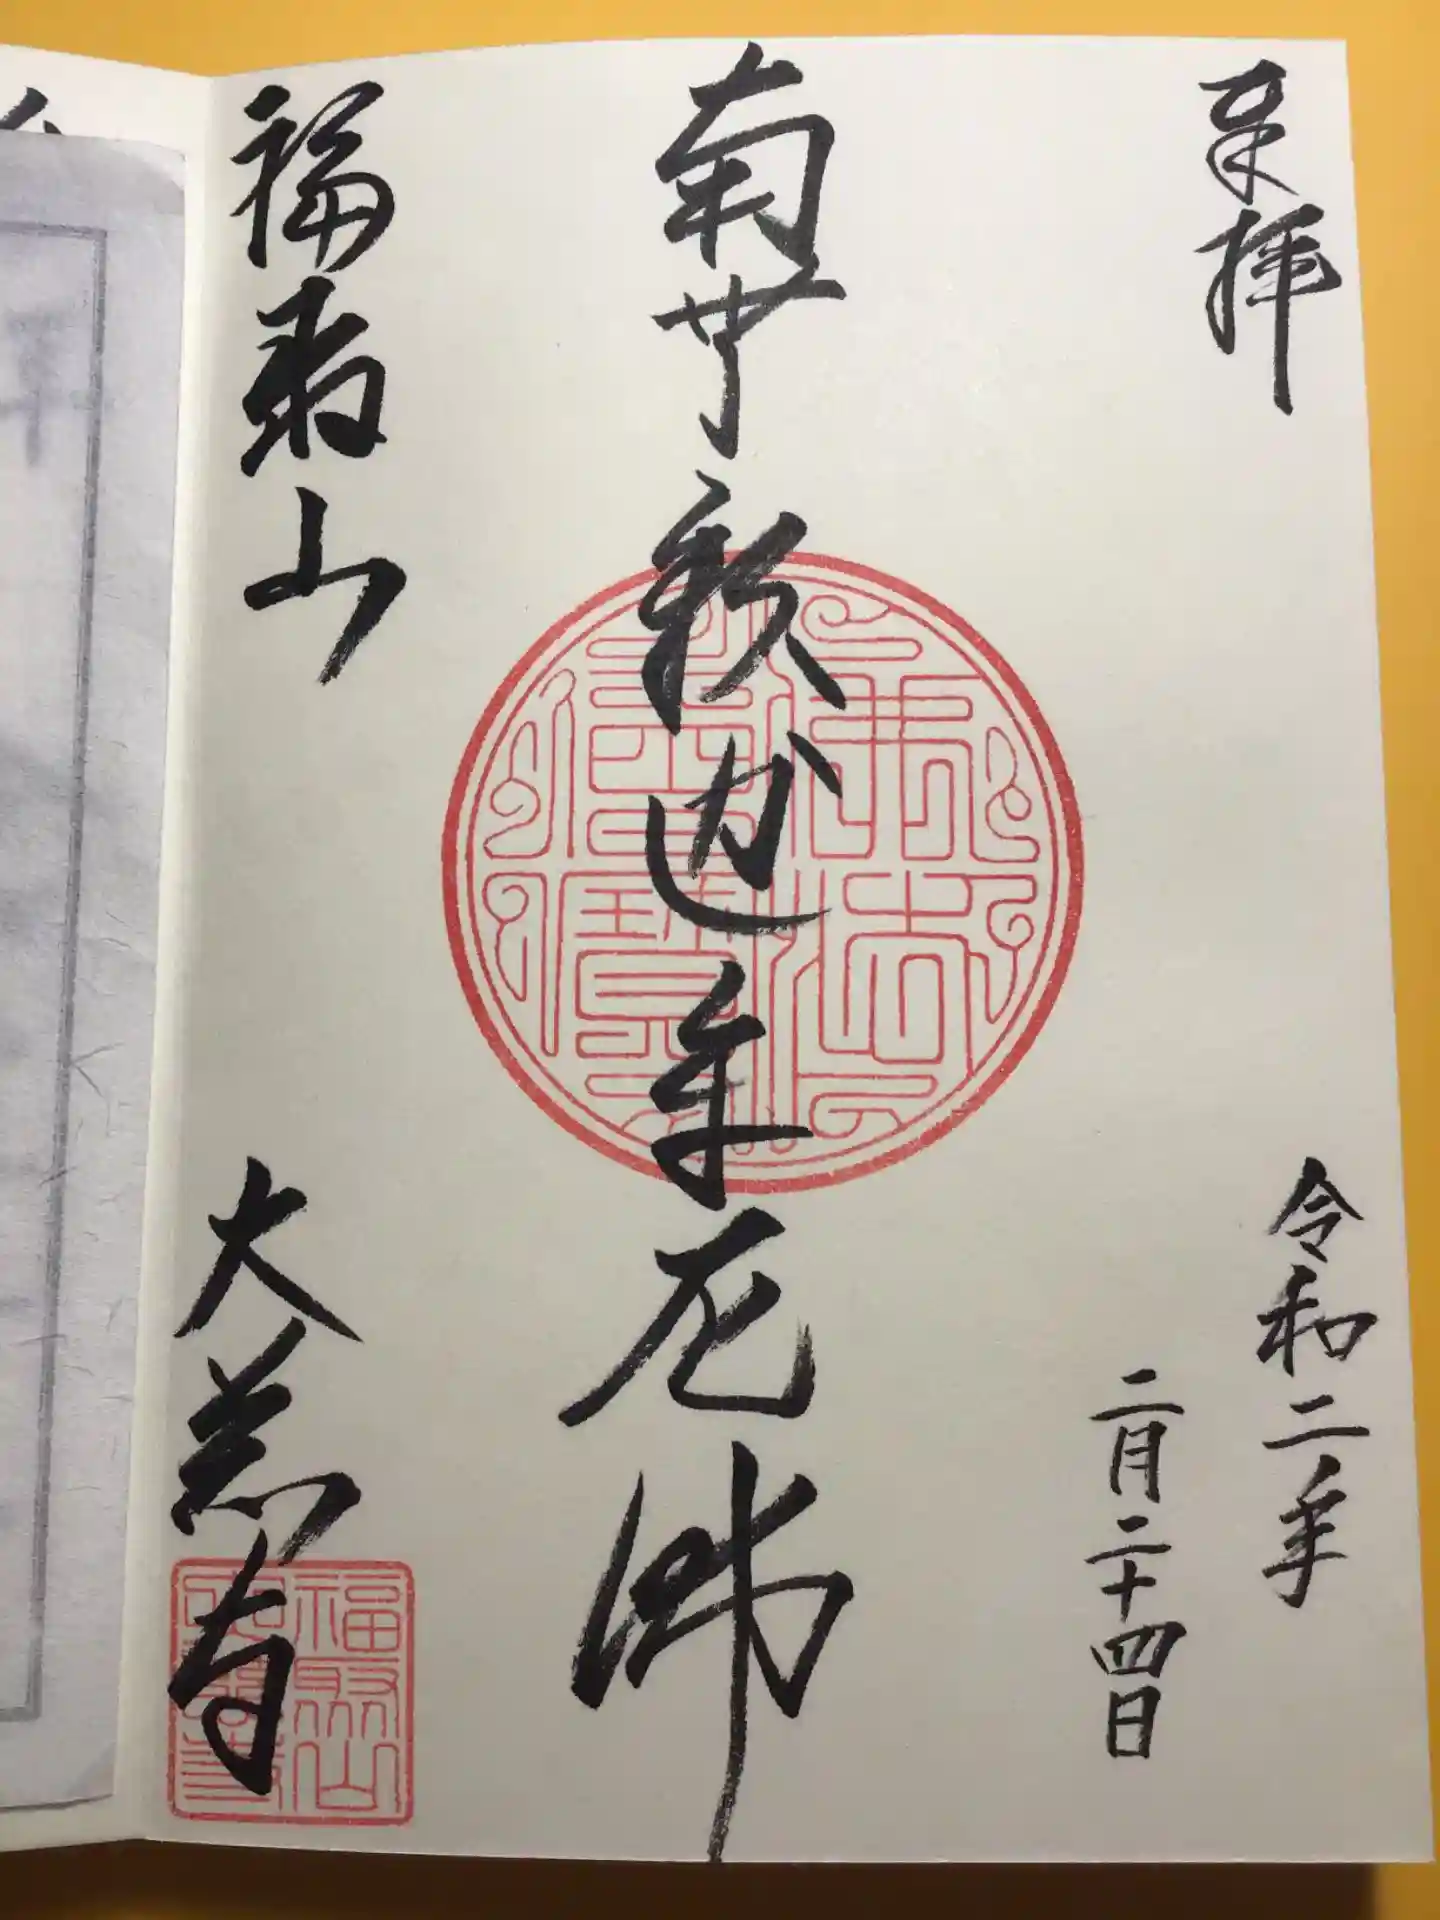 奉拝
令和二年
二月二十四日
南無釈迦牟尼佛
佛法
僧寶
福聚山
大慈寺
福聚山